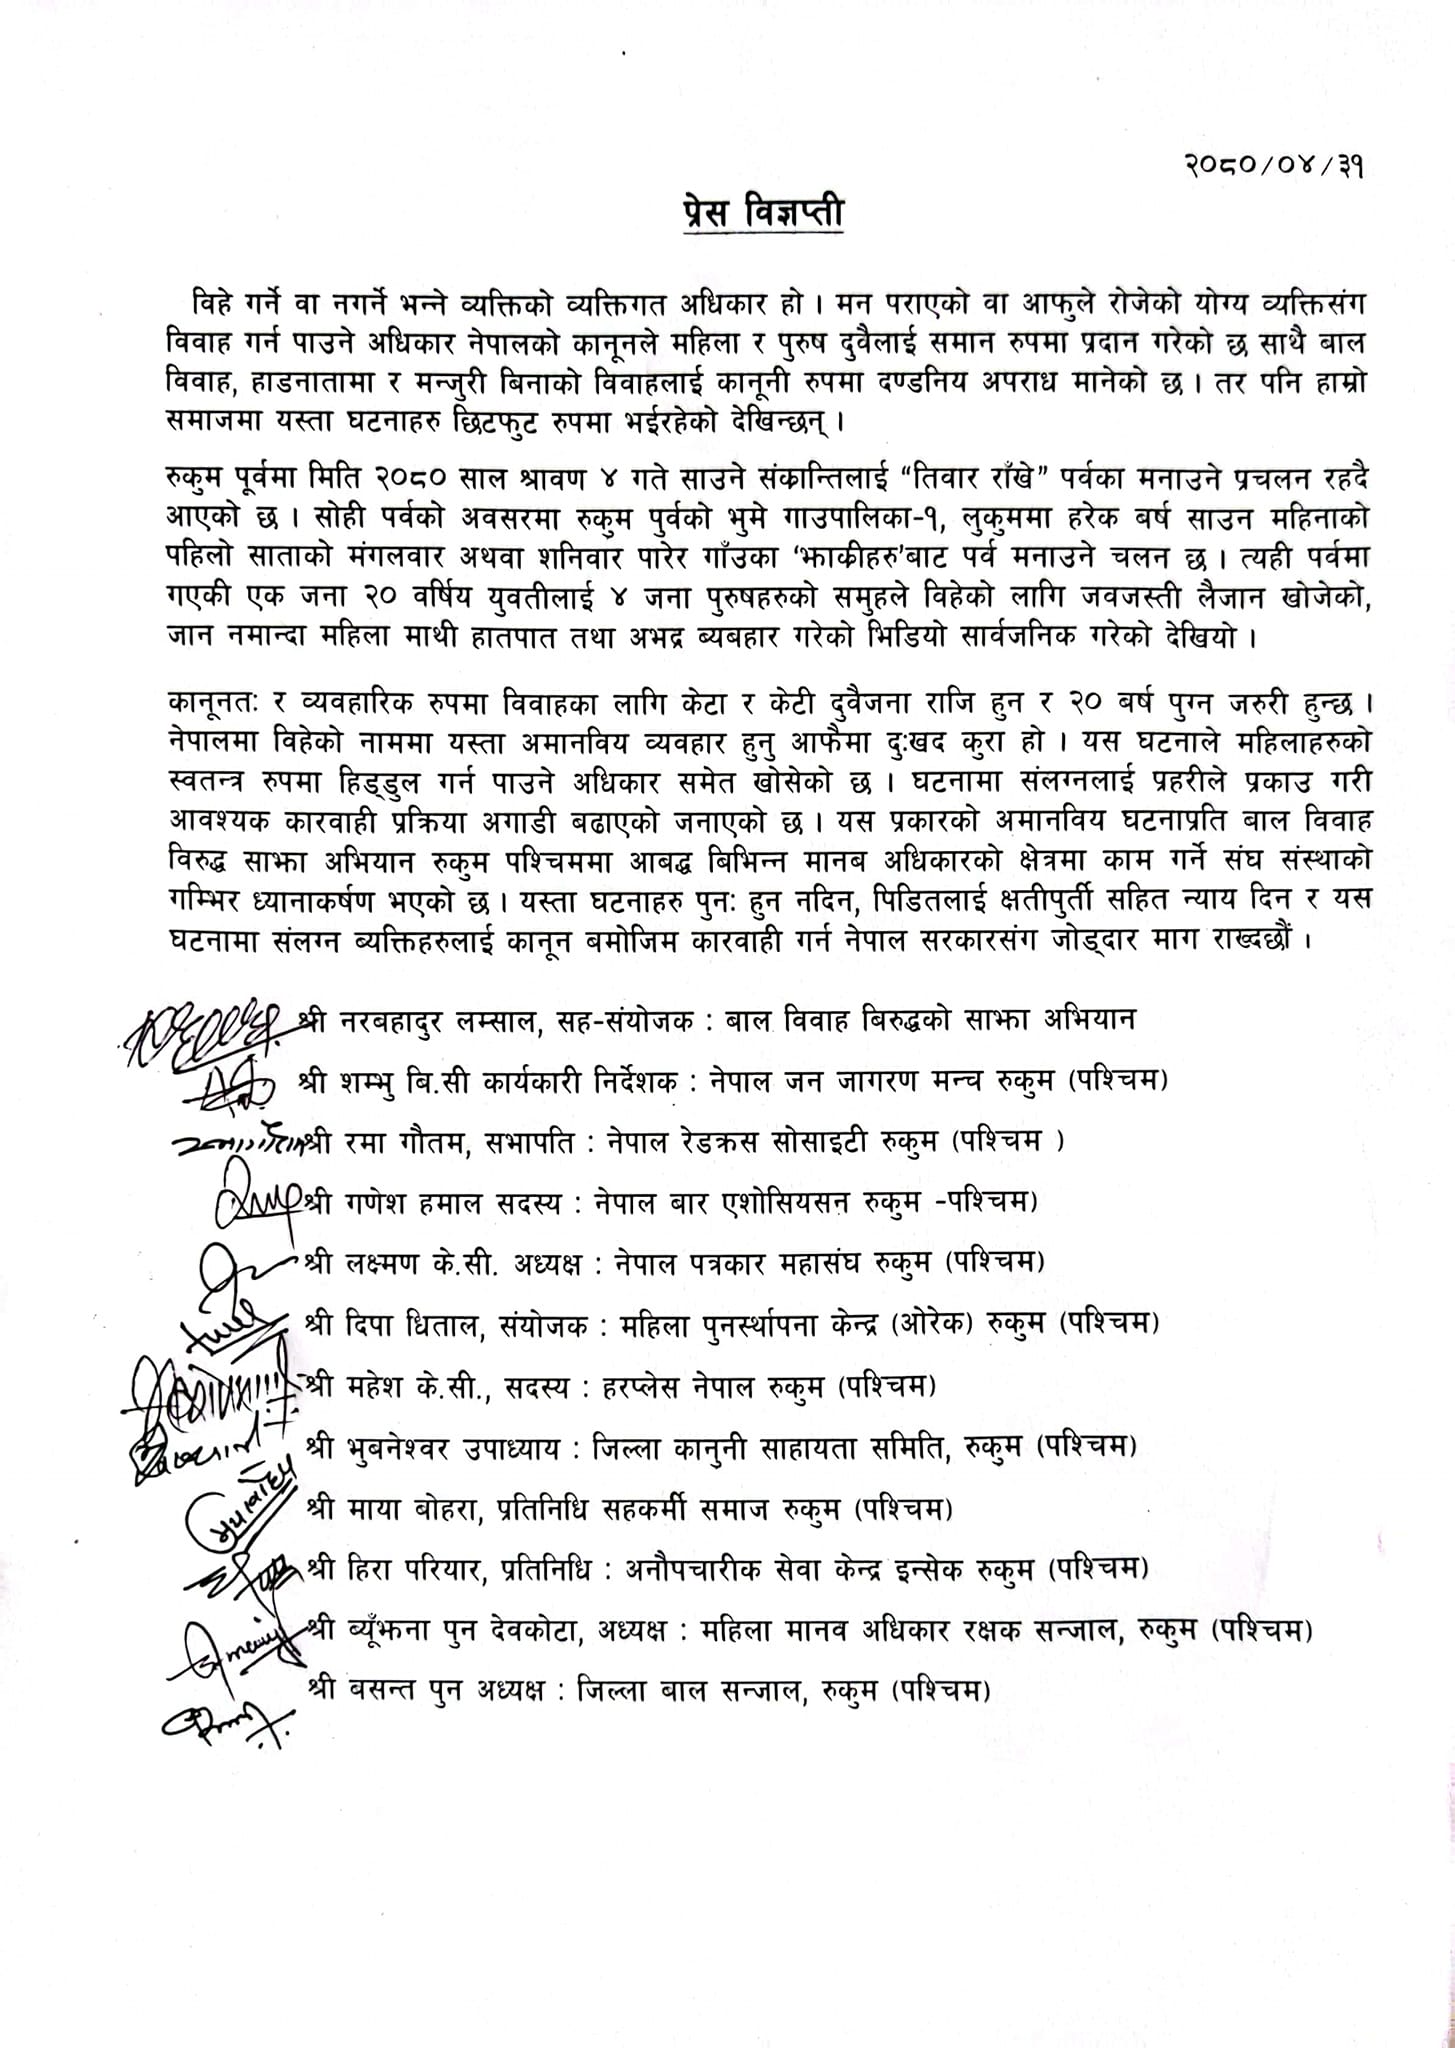 २०८०/०४/३१
प्रेस विज्ञप्ती
विहे गर्ने वा नगर्ने भन्ने व्यक्तिको व्यक्तिगत अधिकार हो । मन पराएको वा आफुले रोजेको योग्य व्यक्तिसंग
विवाह गर्न पाउने अधिकार नेपालको कानूनले महिला र पुरुष दुवैलाई समान रुपमा प्रदान गरेको छ साथै बाल
विवाह, हाडनातामा र मन्जुरी बिनाको विवाहलाई कानूनी रुपमा दण्डनिय अपराध मानेको छ । तर पनि हाम्रो
समाजमा यस्ता घटनाहरु छिटफुट रुपमा भईरहेको देखिन्छन् ।
रुकुम पूर्वमा मिति २०८० साल श्रावण ४ गते साउने संक्रान्तिलाई “तिवार राँखे” पर्वका मनाउने प्रचलन रहदै
आएको छ । सोही पर्वको अवसरमा रुकुम पुर्वको भुमे गाउपालिका-१, लुकुममा हरेक बर्ष साउन महिनाको
पहिलो साताको मंगलवार अथवा शनिवार पारेर गाँउका ‘झाक्रीहरु’बाट पर्व मनाउने चलन छ । त्यही पर्वमा
गएकी एक जना २० वर्षिय युवतीलाई ४ जना पुरुषहरुको समुहले विहेको लागि जवजस्ती लैजान खोजेको,
जान नमान्दा महिला माथी हातपात तथा अभद्र ब्यबहार गरेको भिडियो सार्वजनिक गरेको देखियो ।
कानूनतः र व्यवहारिक रुपमा विवाहका लागि केटा र केटी दुवैजना राजि हुन र २० बर्ष पुग्न जरुरी हुन्छ ।
नेपालमा विहेको नाममा यस्ता अमानविय व्यवहार हुनु आफैमा दुःखद कुरा हो । यस घटनाले महिलाहरुको
स्वतन्त्र रुपमा हिड्डुल गर्न पाउने अधिकार समेत खोसेको छ । घटनामा संलग्नलाई प्रहरीले प्रकाउ गरी
आवश्यक कारवाही प्रक्रिया अगाडी बढाएको जनाएको छ । यस प्रकारको अमानविय घटनाप्रति बाल विवाह
विरुद्ध साझा अभियान रुकुम पश्चिममा आबद्ध बिभिन्न मानब अधिकारको क्षेत्रमा काम गर्ने संघ संस्थाको
गम्भिर ध्यानाकर्षण भएको छ । यस्ता घटनाहरु पुनः हुन नदिन, पिडितलाई क्षतीपुर्ती सहित न्याय दिन र यस
घटनामा संलग्न ब्यक्तिहरुलाई कानून बमोजिम कारवाही गर्न नेपाल सरकारसंग जोड्दार माग राख्दछौं ।
श्री नरबहादुर लम्साल, सह-संयोजक : बाल विवाह बिरुद्धको साझा अभियान
श्री शम्भु बि.सी कार्यकारी निर्देशक : नेपाल जन जागरण मन्च रुकुम (पश्चिम)
श्री रमा गौतम, सभापति : नेपाल रेडक्रस सोसाइटी रुकुम (पश्चिम )
श्री गणेश हमाल सदस्य : नेपाल बार एशोसियसन रुकुम -पश्चिम)
श्री लक्ष्मण के.सी. अध्यक्ष : नेपाल पत्रकार महासंघ रुकुम (पश्चिम)
श्री दिपा धिताल, संयोजक : महिला पुनर्स्थापना केन्द्र (ओरेक) रुकुम (पश्चिम)
श्री महेश के.सी., सदस्य : हरप्लेस नेपाल रुकुम (पश्चिम)
श्री भुबनेश्वर उपाध्याय : जिल्ला कानुनी साहायता समिति, रुकुम (पश्चिम)
श्री माया बोहरा, प्रतिनिधि सहकर्मी समाज रुकुम (पश्चिम)
श्री हिरा परियार, प्रतिनिधि : अनौपचारीक सेवा केन्द्र इन्सेक रुकुम (पश्चिम)
श्री ब्यूँझना पुन देवकोटा, अध्यक्ष : महिला मानव अधिकार रक्षक सन्जाल, रुकुम (पश्चिम)
श्री बसन्त पुन अध्यक्ष : जिल्ला बाल सन्जाल, रुकुम (पश्चिम)